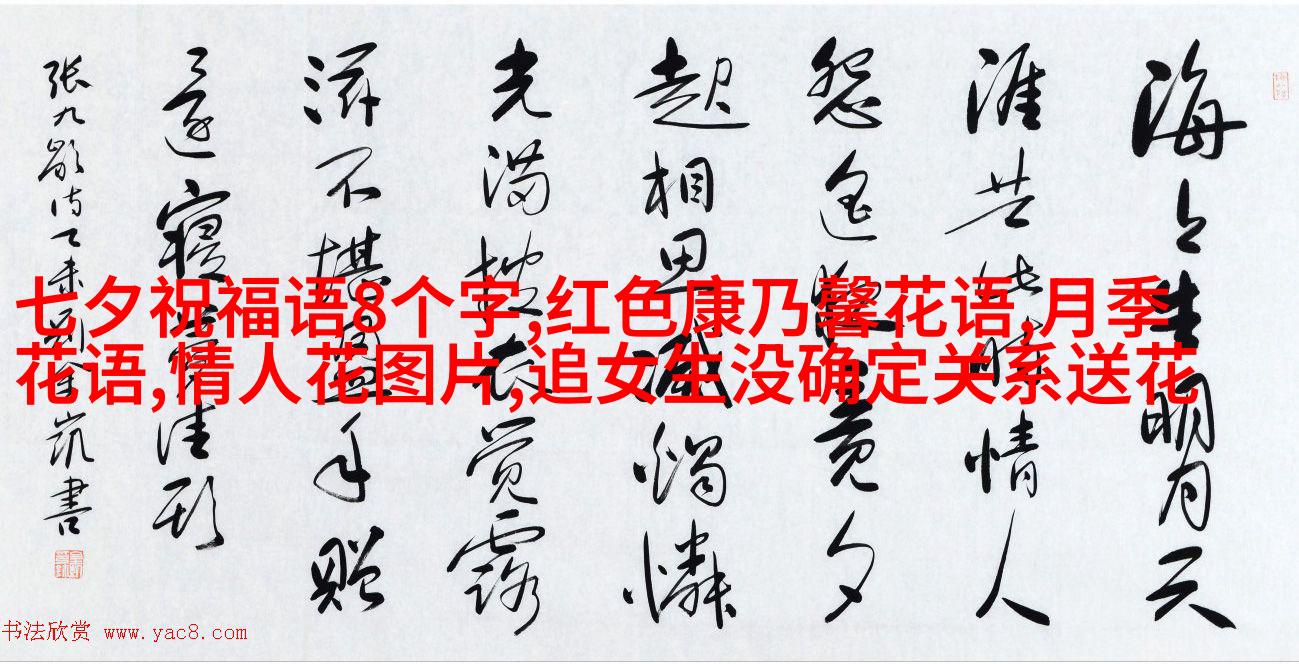 海上生明月天
涯共此時情人
怨遥夜竟夕
起相思滅燭憐
光满披衣觉露
滋不堪盈手贈
還寝夢佳期
张九龄诗乙未刘金凯書
七夕祝福语8个字,红色康乃馨花语,月季
花语,情人花图片,追女生没确定关系送花
书法欣赏 www.yac8.com